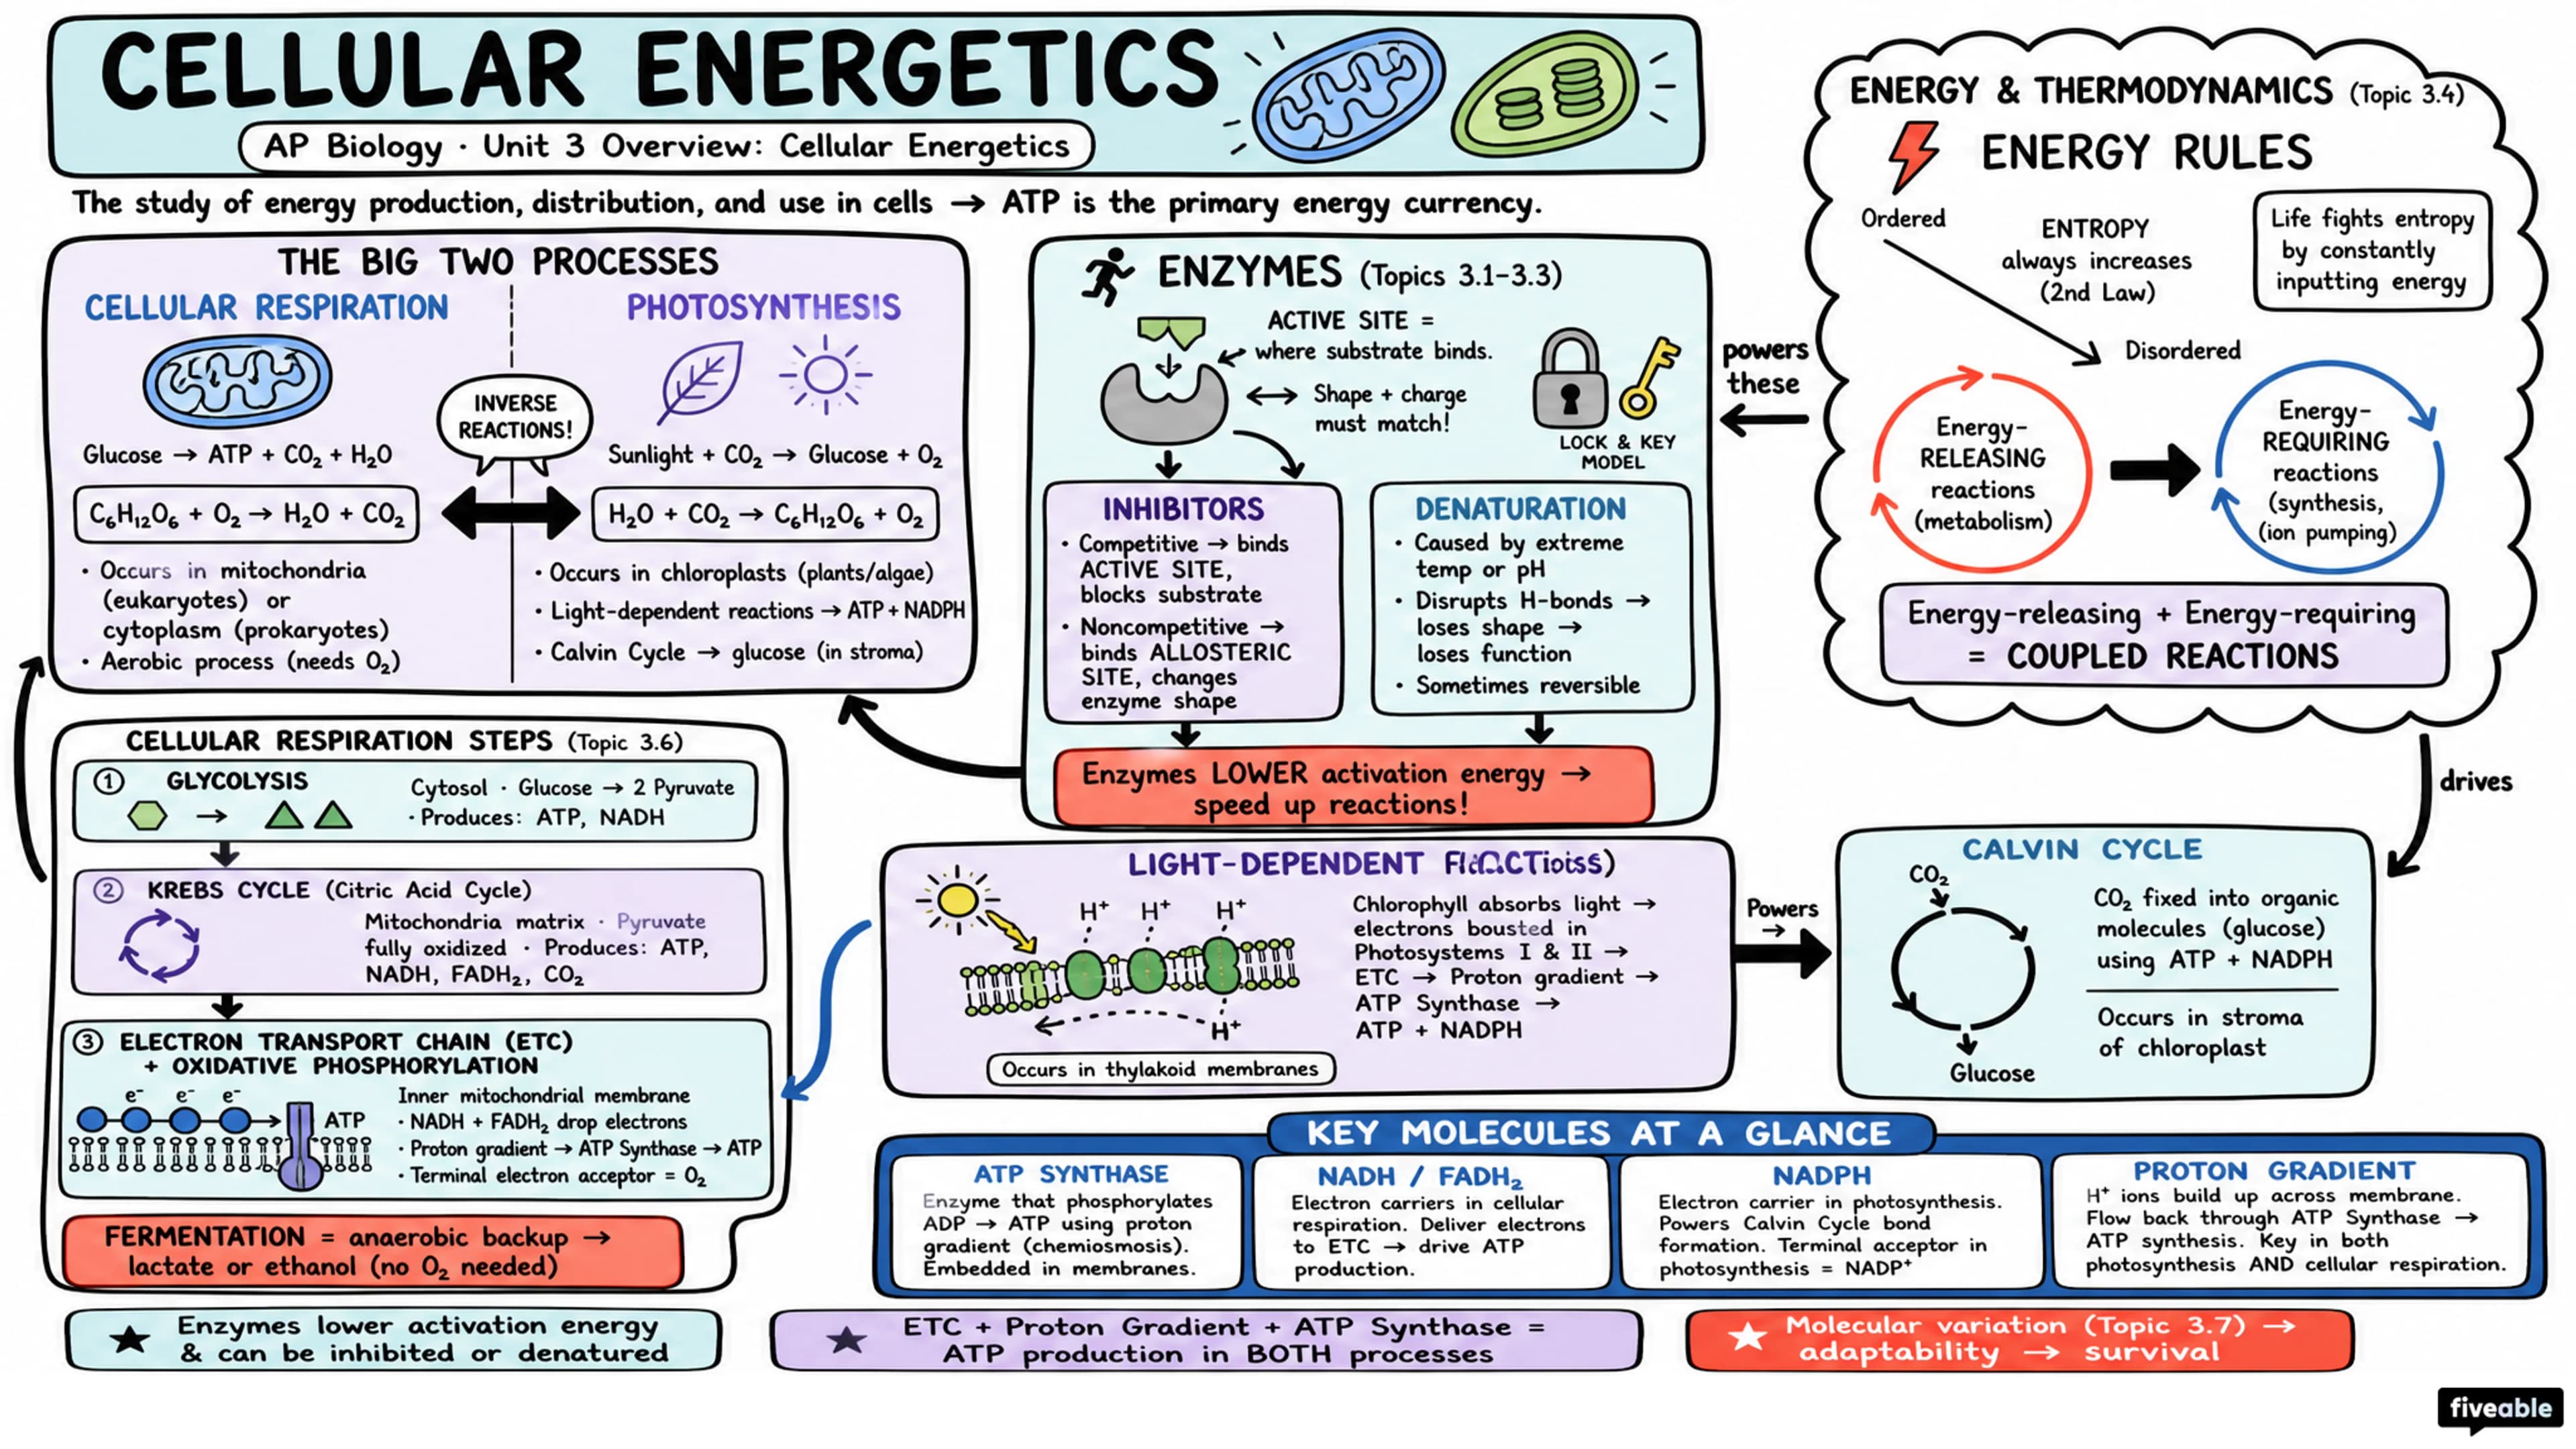 CELLULAR ENERGETICS
AP Biology · Unit 3 Overview: Cellular Energetics
The study of energy production, distribution, and use in cells → ATP is the primary energy currency.
THE BIG TWO PROCESSES
CELLULAR RESPIRATION
Glucose → ATP + CO₂ + H₂O
C₆H₁₂O₆ + O₂ → H₂O + CO₂
• Occurs in mitochondria
(eukaryotes) or
cytoplasm (prokaryotes)
• Aerobic process (needs O₂)
INVERSE
REACTIONS!
PHOTOSYNTHESIS
Sunlight + CO₂ → Glucose + O₂
H₂O + CO₂ → C₆H₁₂O₆ + O₂
• Occurs in chloroplasts (plants/algae)
• Light-dependent reactions → ATP + NADPH
• Calvin Cycle → glucose (in stroma)
ENZYMES (Topics 3.1-3.3)
ACTIVE SITE =
where substrate binds.
Shape + charge
must match!
LOCK & KEY
MODEL
INHIBITORS
• Competitive → binds
ACTIVE SITE,
blocks substrate
• Noncompetitive →
binds ALLOSTERIC
SITE, changes
enzyme shape
DENATURATION
• Caused by extreme
temp or pH
• Disrupts H-bonds →
loses shape →
loses function
• Sometimes reversible
Enzymes LOWER activation energy →
speed up reactions!
powers
these
ENERGY & THERMODYNAMICS (Topic 3.4)
ENERGY RULES
Ordered
ENTROPY
always increases
(2nd Law)
Life fights entropy
by constantly
inputting energy
Disordered
Energy-
RELEASING
reactions
(metabolism)
Energy-
REQUIRING
reactions
(synthesis,
(ion pumping)
Energy-releasing + Energy-requiring
= COUPLED REACTIONS
drives
CELLULAR RESPIRATION STEPS (Topic 3.6)
① GLYCOLYSIS
Cytosol · Glucose → 2 Pyruvate
· Produces: ATP, NADH
② KREBS CYCLE (Citric Acid Cycle)
Mitochondria matrix · Pyruvate
fully oxidized · Produces: ATP,
NADH, FADH₂, CO₂
③ ELECTRON TRANSPORT CHAIN (ETC)
+ OXIDATIVE PHOSPHORYLATION
e⁻ e⁻ e⁻
ATP
Inner mitochondrial membrane
· NADH + FADH₂ drop electrons
· Proton gradient → ATP Synthase → ATP
· Terminal electron acceptor = O₂
FERMENTATION = anaerobic backup →
lactate or ethanol (no O₂ needed)
LIGHT-DEPENDENT
H⁺ H⁺ H⁺
H⁺
Occurs in thylakoid membranes
Chlorophyll absorbs light →
electrons bousted in
Photosystems I & II →
ETC → Proton gradient →
ATP Synthase →
ATP + NADPH
Powers
→
CALVIN CYCLE
CO₂
Glucose
CO₂ fixed into organic
molecules (glucose)
using ATP + NADPH
Occurs in stroma
of chloroplast
KEY MOLECULES AT A GLANCE
ATP SYNTHASE
Enzyme that phosphorylates
ADP → ATP using proton
gradient (chemiosmosis).
Embedded in membranes.
NADH / FADH₂
Electron carriers in cellular
respiration. Deliver electrons
to ETC → drive ATP
production.
NADPH
Electron carrier in photosynthesis.
Powers Calvin Cycle bond
formation. Terminal acceptor in
photosynthesis = NADP⁺
PROTON GRADIENT
H⁺ ions build up across membrane.
Flow back through ATP Synthase →
ATP synthesis. Key in both
photosynthesis AND cellular respiration.
★ Enzymes lower activation energy
& can be inhibited or denatured
★ ETC + Proton Gradient + ATP Synthase =
ATP production in BOTH processes
★ Molecular variation (Topic 3.7) →
adaptability → survival
fiveable